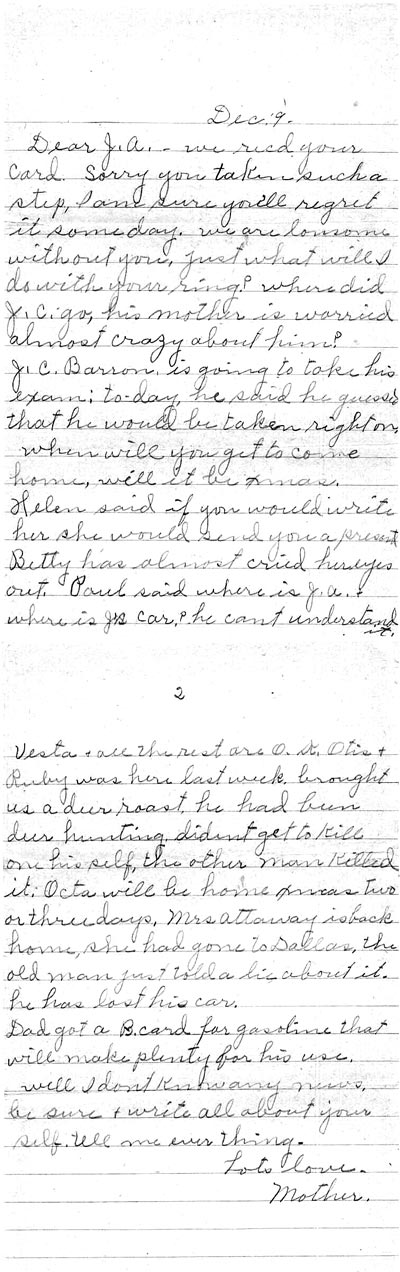 Dec. 9.
Dear J.A. - we recd your
card. Sorry you taken such a
step, I am sure you'll regret
it someday. we are lonsome
without you, just what will I
do with your ring? where did
J.C. go, his mother is worried
almost crazy about him?
J.C. Barron. is going to take his
exam; to-day, he said he guesses
that he would be taken right on,
when will you get to come
home, will it be xmas.
Helen said if you would write
her she would send you a present
Betty has almost cried her eyes
out. Paul said where is J.A. +
where is J's car,? he cant understand
it.
2
Vesta + all the rest are O.K. Otis +
Ruby was here last week, brought
us a deer roast, he had been
deer hunting, dident get to kill
one his self, the other man killed
it; Octa will be home xmas two
or three days, Mrs Attaway is back
home, she had gone to Dallas, the
old man just told a lie about it.
he has lost his car.
Dad got a B. card for gasoline that
will make plenty for his use.
well I dont know any news,
be sure + write all about your
self. tell me ever thing.
Lots love.
Mother.